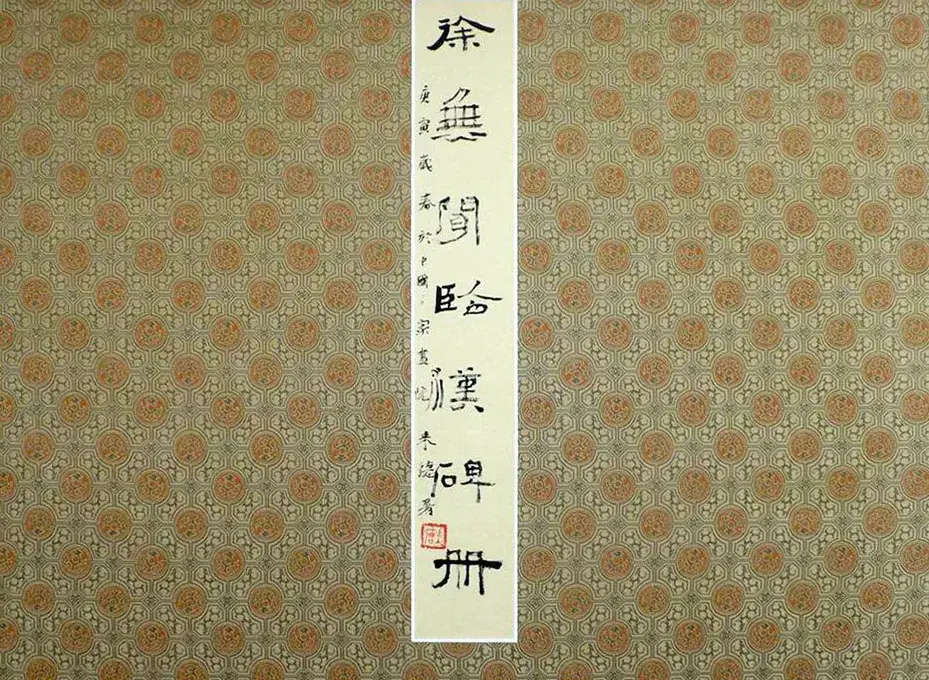 徐無聞臨漢碑冊
庚寅歲春於中國 畫院 德署